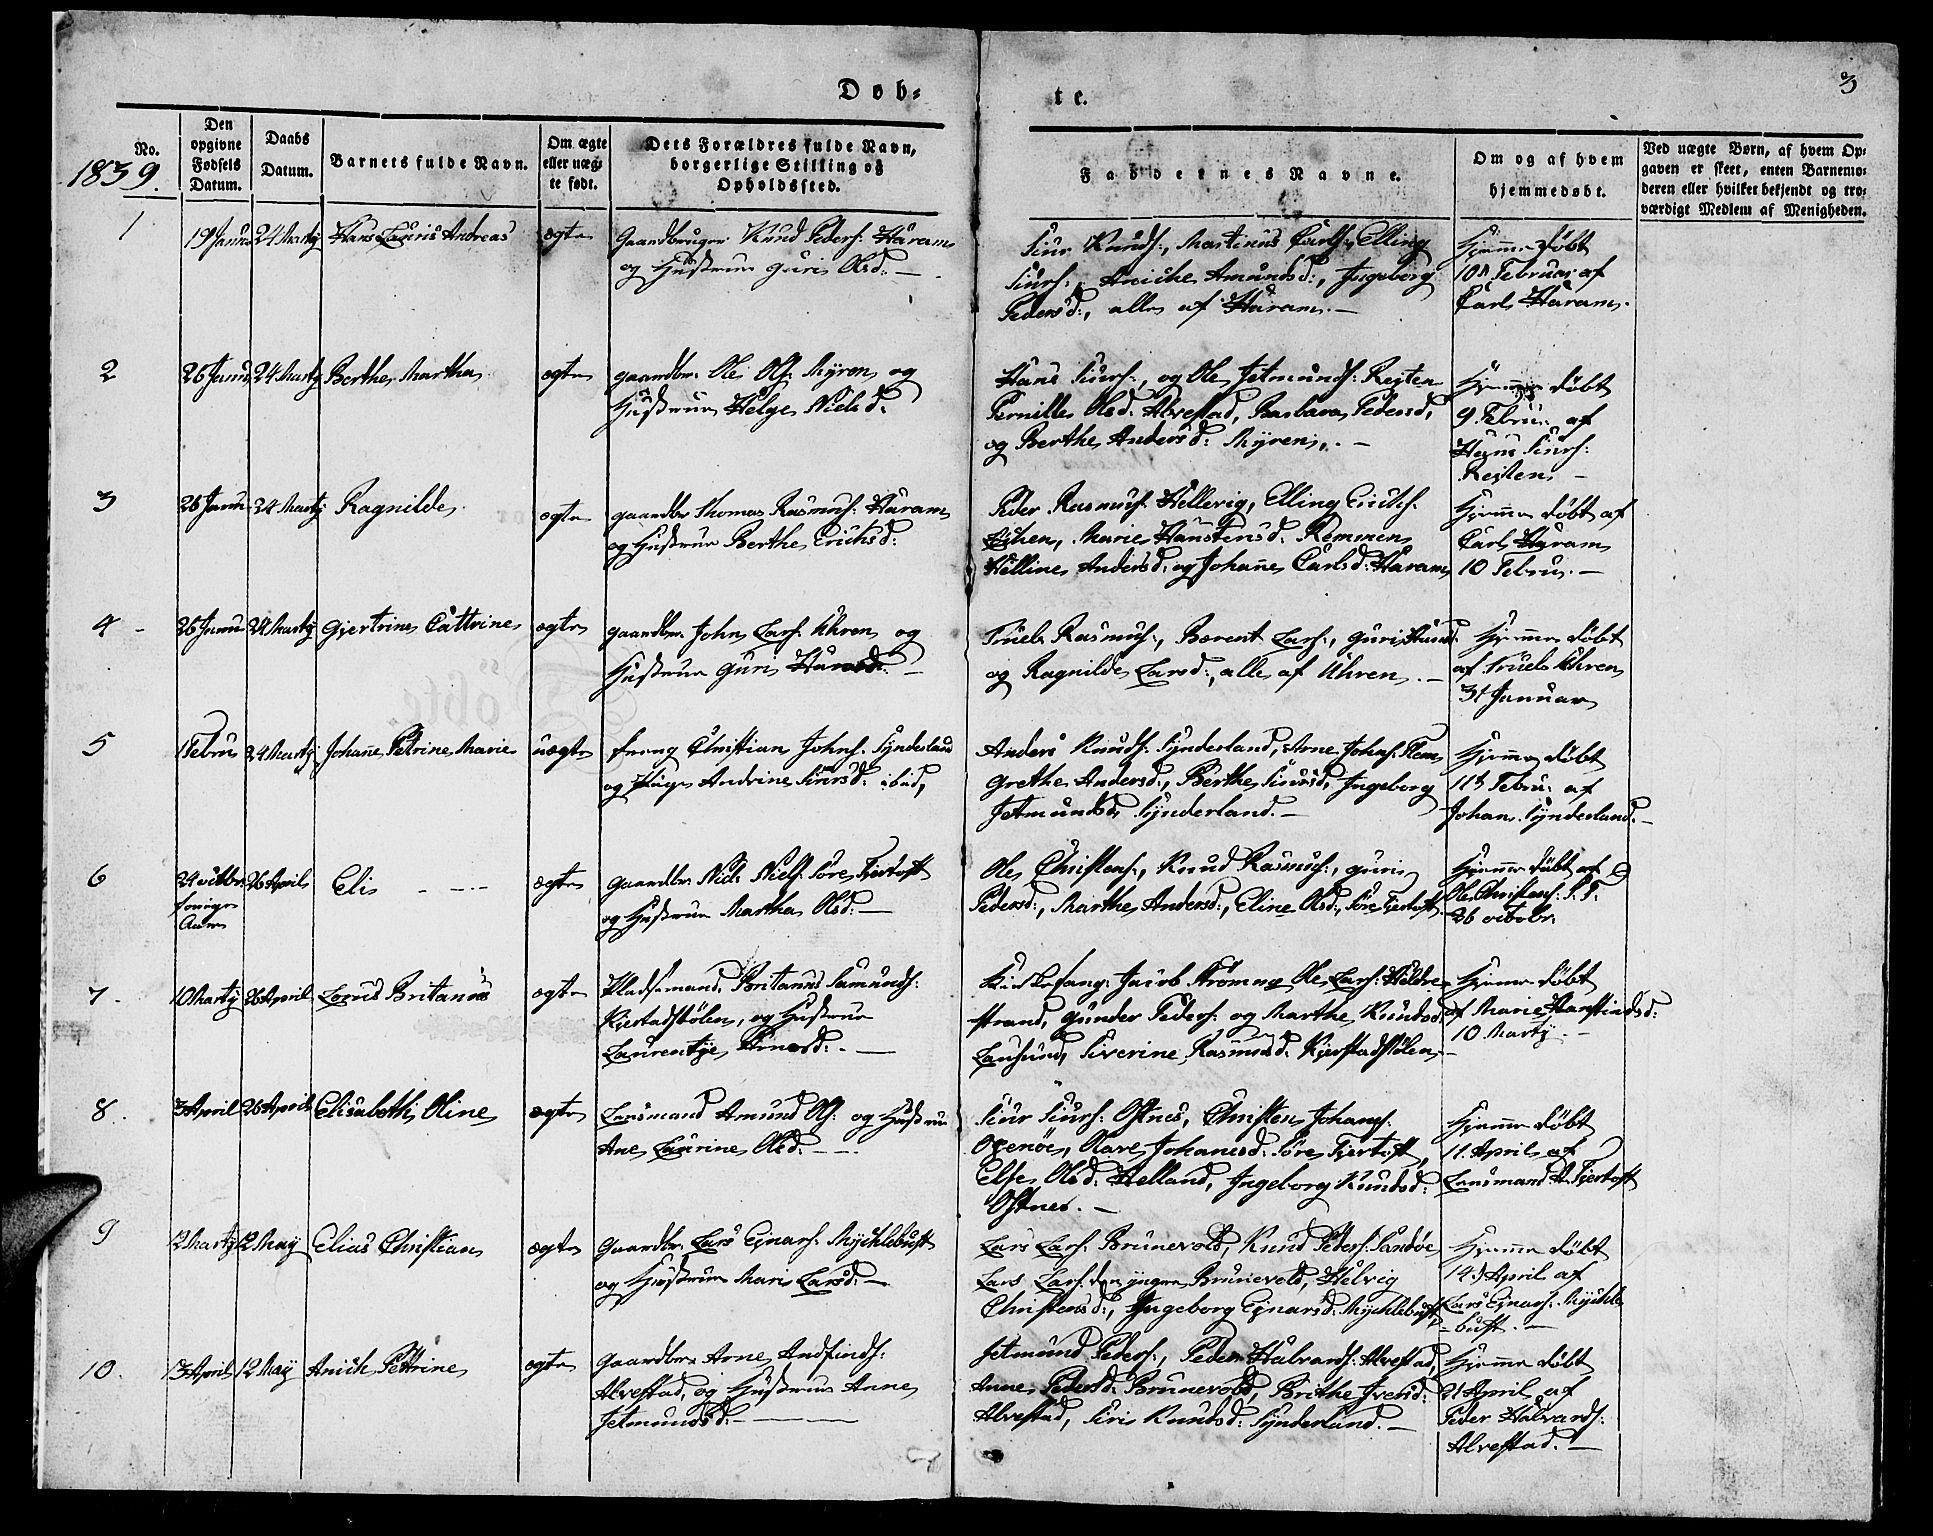 Døb=
te.
3
1839.
No.
Den opgivne Fødsels Datum.
Daabs Datum.
Barnets fulde Navn.
Om ægte eller uægte født.
Dets Forældres fulde Navn, borgerlige Stilling og Opholdssted.
Faddernes Navne.
Om og af hvem hjemmedøbt.
Ved uægte Børn, af hvem Op=
gaven er skeet, enten Barnemo=
deren eller hvilket bekjendt og tro=
værdigt Medlem af Menigheden.
1
19 Janua 24 Martÿ Hans Lauris Andreas ægte Gaardbruger Knud Peders: Haram
og Hustrue Guri Olsd: —
Siur Knuds:, Martinus Carls:, Elling
Siurs:, Aniche Amundsd:, Ingeborg
Pedersd:, alle af Haram. —
Hjemmedøbt
10d Februar af
Carl Haram.
2
26 Janu 24 Martÿ Berthe Martha ægte gaardbr. Ole Ols: Myren og
Hustrue Helge Nielsd:
Hans Siurs:, og Ole Jetmunds: Rejten
Pernille Olsd: Alvestad, Barbara Pedersd,
og Berthe Andersd: Myren. —
Hjemmedøbt
9 Febru: af
Hans Siurs:
Rejten —
3
26 Janu 24 Martÿ Ragnilde ægte gaardbr Thomas Rasmus: Haram
og Hustrue Berthe Erichsd:
Peder Rasmus: Hellevig, Elling Erichs:
Marie Hanstensd: Remmen
Helline Andersd: og Johanne Carlsd: Haram
Hjemmedøbt af
Carl Haram
10 Febru. —
4
26 Janu 24 Martÿ Gjertrine Cattrine ægte gaardbr. John Lars: Uhren og
Hustrue Guri —
Truels Rasmus:, Berent Lars:, Guri
og Ragnilde Larsd:, alle af Uhren. —
Hjemmedøbt
af Truels Uhren
31 Januar
5
1 Febru 24 Martÿ Johane Petrine Marie uægte Christian Johns: Synderland
og Pige Andrine Siursd: ibid,
Anders Knuds: Synderland, Arne Johans: Flem
Grethe Andersd:, Berthe Siursd, Ingeborg
Jetmundsd, Synderland. —
Hjemmedøbt
11d Febru: af
Johan Synderland. —
6
24 octbr. 26 April Elis ægte gaardbr. Niels Niels: Søre Fjertoft
forrige
Aar
og Hustrue Martha Olsd: —
Ole Christens:, Knud Rasmus:, Guri
Pedersd:, Marthe Andersd:, Eline Olsd:, Søre Fjertoft
Hjemmedøbt af
Ole Christens: S. F.
26 octobr:
7
10 Martÿ 26 April Lorns Britanus ægte Pladsmand Britanus Samunds:
Kjerstadstølen, og Hustrue
Laurentze Arnesd: —
Jacob Strøm og Ole Lars: Hildre
strand, Gunder Peders: og Marthe Knudsd:
Lausund, Siverine Rasmusd: Kjerstadstølen —
Hjemmedøbt
af Marie Hanstindsd:
10 Martÿ —
8
3 April 26 April Elisabeth Oline ægte Lensmand Amund Ols: og Hustrue
Ane Laurine Olsd: —
Siur Siurs: Ostnes, Christen Johans:
Oxenøe, Olave Johanesd: Søre Fjertoft,
Else Olsd: Helland, Ingeborg Knudsd:
Ostnes. —
Hjemmedøbt
11 April af
Lensmand A. Fjertoft
9
12 Martÿ 12 Maÿ Elias Christian ægte Gaardbr. Lars Ejnars: Mychlebust
og Hustrue Mari Larsd: —
Lars Lars: Brunevold, Knud Peders: Sandøe
Lars Lars: den yngre Brunevold, Helvig
Christensd:, Ingeborg Ejnarsd: Mychlebust,
Hjemmedøbt
14d April af
Lars Ejnars: Myckle
=bust. —
10.
13 April 12 Maÿ Anich Pettrine ægte Gaardbr. Arne Andfinds:
Alvestad, og Hustrue Anne
Jetmundsd: —
Jetmund Peders:, Peder Halvards: Alvestad,
Anne Pedersd: Brunevold, Brithe Iversd:
Alvestad, Siri Knudsd: Synderland. —
Hjemmedøbt
21 April af
Peder Halvards:
Alvestad. —